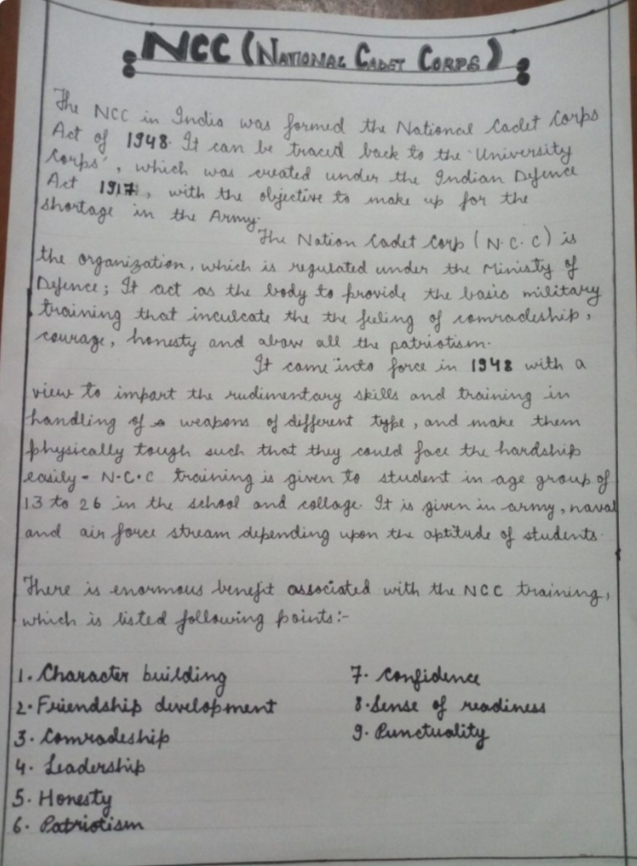 NCC (NATIONAL CADET CORPS)
The NCC in India was formed the National Cadet Corps
Act of 1948. It can be traced back to the 'University
Corps', which was created under the Indian Defence
Act 1917, with the objective to make up for the
shortage in the Army.
The Nation Cadet Corp (N.C.C) is
the organization, which is regulated under the Ministy of
Defence; It act as the body to provide the basic military
training that inculcate the the feeling of comradeship,
courage, honesty and above all the patriotism.
It came into force in 1948 with a
view to impart the rudimentary skills and training in
handling of a weapons of different type, and make them
physically tough such that they could face the hardship
easily - N.C.C training is given to student in age group of
13 to 26 in the school and collage. It is given in army, naval
and air force stream depending upon the aptitude of students.
There is enormous benefit associated with the NCC training,
which is listed following points:-
1. Character building
2. Friendship development
3. Comradeship
4. Leadership
5. Honesty
6. Patriotism
7. Confidence
8. Sense of readiness
9. Punctuality